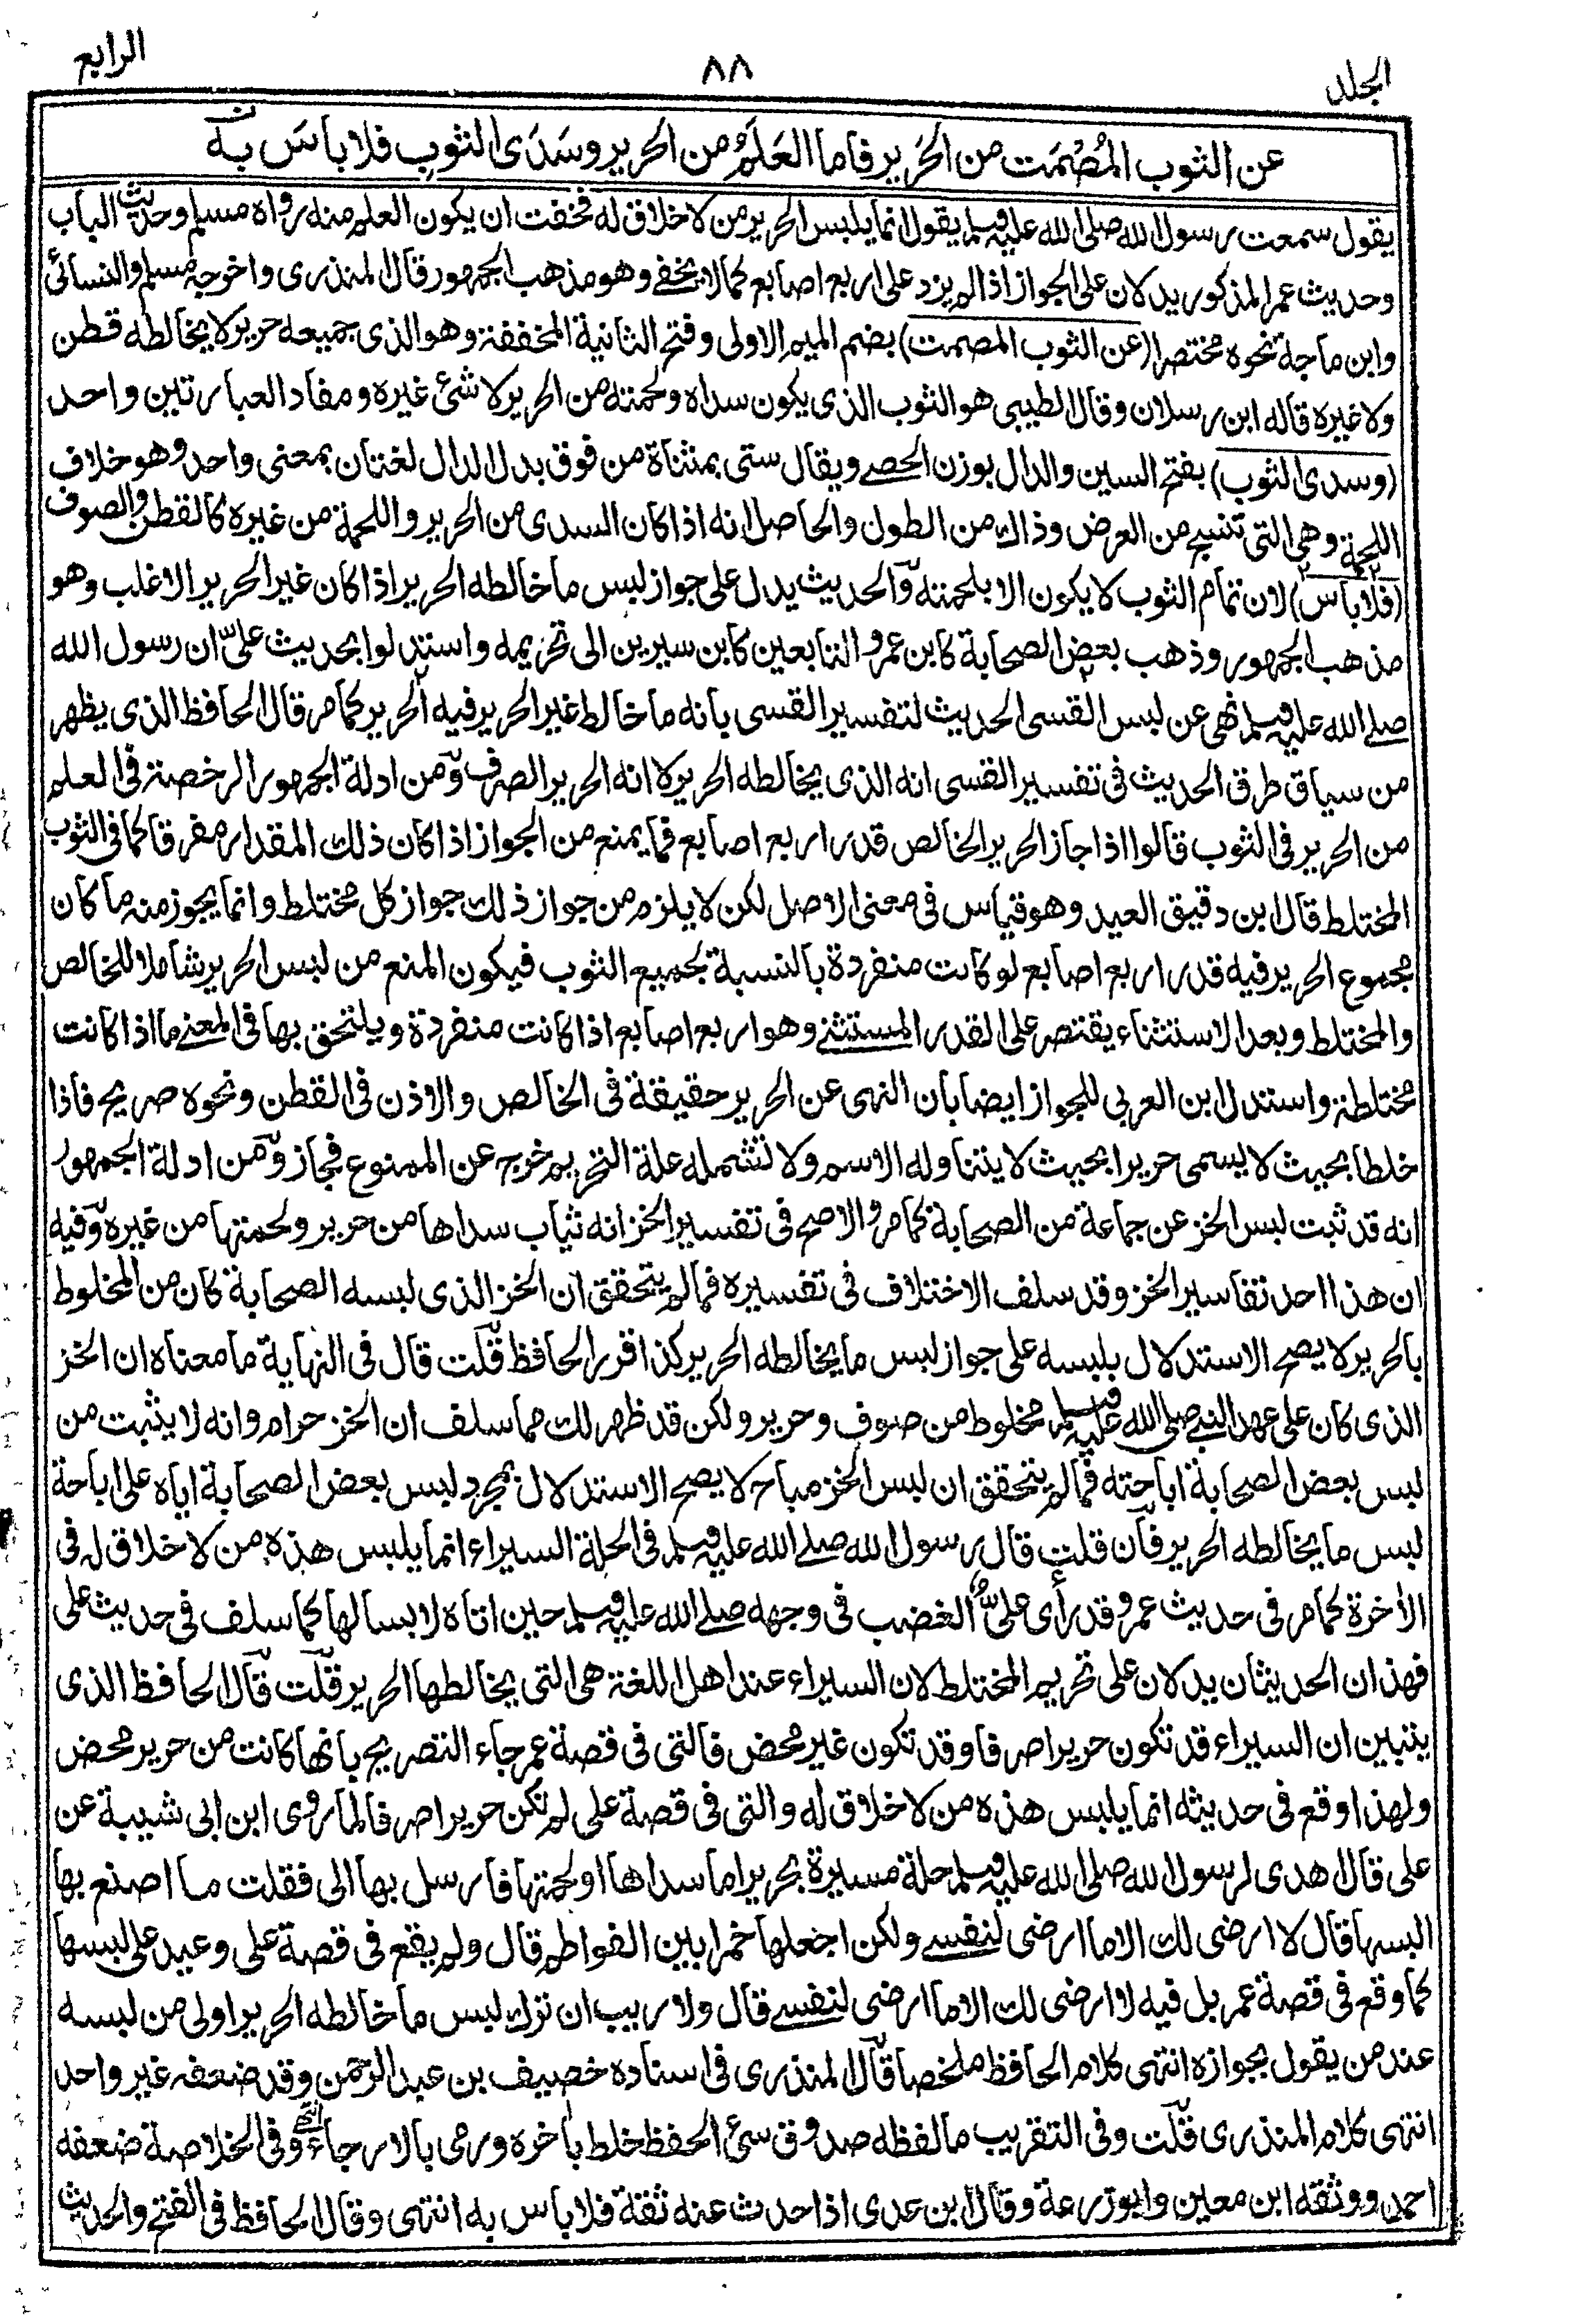 الجلد
٨٨
الرابع
عن الثوب المُصْمَت من الحَرير فاما العَلَمُ من الحرير وسَدَى الثوبِ فلا باسَ به
يقول سمعت رسول الله صلى الله عليه وسلم يقول انما يلبس الحرير من لا خلاق له فخفت ان يكون العلم منه رواه مسلم وحديث الباب
وحديث عمر المذكور يدلان على الجواز اذا لم يزد على اربع اصابع كما لا يخفى وهو مذهب الجمهور قال المنذرى واخرجه مسلم والنسائى
وابن ماجة نحوه مختصرا (عن الثوب المصمت) بضم الميم الاولى وفتح الثانية المخففة وهو الذى جميعه حرير لا يخالطه قطن
ولا غيره قاله ابن رسلان وقال الطيبى هو الثوب الذى يكون سداه ولحمته من الحرير لا شئ غيره ومفاد العبارتين واحد
(وسدى الثوب) بفتح السين والدال بوزن الحصى ويقال ستى بمثناة من فوق بدل الدال لغتان بمعنى واحد وهو خلاف
اللحمة وهى التى تنسج من العرض وذاك من الطول والحاصل انه اذا كان السدى من الحرير واللحمة من غيره كالقطن والصوف
(فلا باس) لان تمام الثوب لا يكون الا بلحمته والحديث يدل على جواز لبس ما خالطه الحرير اذا كان غير الحرير الاغلب وهو
مذهب الجمهور وذهب بعض الصحابة كابن عمر والتابعين كابن سيرين الى تحريمه واستدلوا بحديث على ان رسول الله
صلى الله عليه وسلم نهى عن لبس القسى الحديث لتفسير القسى بانه ما خالط غير الحرير فيه الحرير كما مر قال الحافظ الذى يظهر
من سياق طرق الحديث فى تفسير القسى انه الذى يخالطه الحرير لا انه الحرير الصرف ومن ادلة الجمهور الرخصة فى العلم
من الحرير فى الثوب قالوا اذا جاز الحرير الخالص قدر اربع اصابع فما يمنع من الجواز اذا كان ذلك المقدار مفرقا كما فى الثوب
المختلط قال ابن دقيق العيد وهو قياس فى معنى الاصل لكن لا يلزم من جواز ذلك جواز كل مختلط وانما يجوز منه ما كان
مجموع الحرير فيه قدر اربع اصابع لو كانت منفردة بالنسبة لجميع الثوب فيكون المنع من لبس الحرير شاملا للخالص
والمختلط وبعد الاستثناء يقتصر على القدر المستثنى وهو اربع اصابع اذا كانت منفردة ويلتحق بها فى المعنى ما اذا كانت
مختلطة واستدل ابن العربى للجواز ايضا بان النهى عن الحرير حقيقة فى الخالص والاذن فى القطن ونحوه صريح فاذا
خلطا بحيث لا يسمى حريرا بحيث لا يتناوله الاسم ولا تشمله علة التحريم خرج عن الممنوع فجاز ومن ادلة الجمهور
انه قد ثبت لبس الخز عن جماعة من الصحابة كما مر والاصح فى تفسير الخز انه ثياب سداها من حرير ولحمتها من غيره وفيه
ان هذا احد تفاسير الخز وقد سلف الاختلاف فى تفسيره فما لم يتحقق ان الخز الذى لبسه الصحابة كان من المخلوط
بالحرير لا يصح الاستدلال بلبسه على جواز لبس ما يخالطه الحرير كذا قرر الحافظ قلت قال فى النهاية ما معناه ان الخز
الذى كان على عهد النبى صلى الله عليه وسلم مخلوط من صوف وحرير ولكن قد ظهر لك مما سلف ان الخز حرام وانه لا يثبت من
لبس بعض الصحابة اباحته فما لم يتحقق ان لبس الخز مباح لا يصح الاستدلال بمجرد لبس بعض الصحابة اياه على اباحة
لبس ما يخالطه الحرير فان قلت قال رسول الله صلى الله عليه وسلم فى الحلة السيراء انما يلبس هذه من لا خلاق له فى
الأخرة كما مر فى حديث عمر وقد رأى علىٌّ الغضب فى وجهه صلى الله عليه وسلم حين اتاه لابسا لها كما سلف فى حديث على
فهذان الحديثان يدلان على تحريم المختلط لان السيراء عند اهل اللغة هى التى يخالطها الحرير قلت قال الحافظ الذى
يتبين ان السيراء قد تكون حريرا صرفا وقد تكون غير محض فالتى فى قصة عمر جاء التصريح بانها كانت من حرير محض
ولهذا وقع فى حديثه انما يلبس هذه من لا خلاق له والتى فى قصة على لم تكن حريرا صرفا لما روى ابن ابى شيبة عن
على قال اهدى لرسول الله صلى الله عليه وسلم حلة مسيرة بحرير اما سداها او لحمتها فارسل بها الى فقلت ما اصنع بها
البسها قال لا ارضى لك الا ما ارضى لنفسى ولكن اجعلها خمرا بين الفواطم قال ولم يقع فى قصة على وعيد على لبسها
كما وقع فى قصة عمر بل فيه لا ارضى لك الا ما ارضى لنفسى قال ولا ريب ان ترك لبس ما خالطه الحرير اولى من لبسه
عند من يقول بجوازه انتهى كلام الحافظ ملخصا قال المنذرى فى اسناده خصيف بن عبد الرحمن وقد ضعفه غير واحد
انتهى كلام المنذرى قلت وفى التقريب ما لفظه صدوق سئ الحفظ خلط بأخره ورمى بالارجاء انتهى وفى الخلاصة ضعفه
احمد ووثقه ابن معين وابو زرعة وقال ابن عدى اذا حدث عنه ثقة فلا باس به انتهى وقال الحافظ فى الفتح والحديث